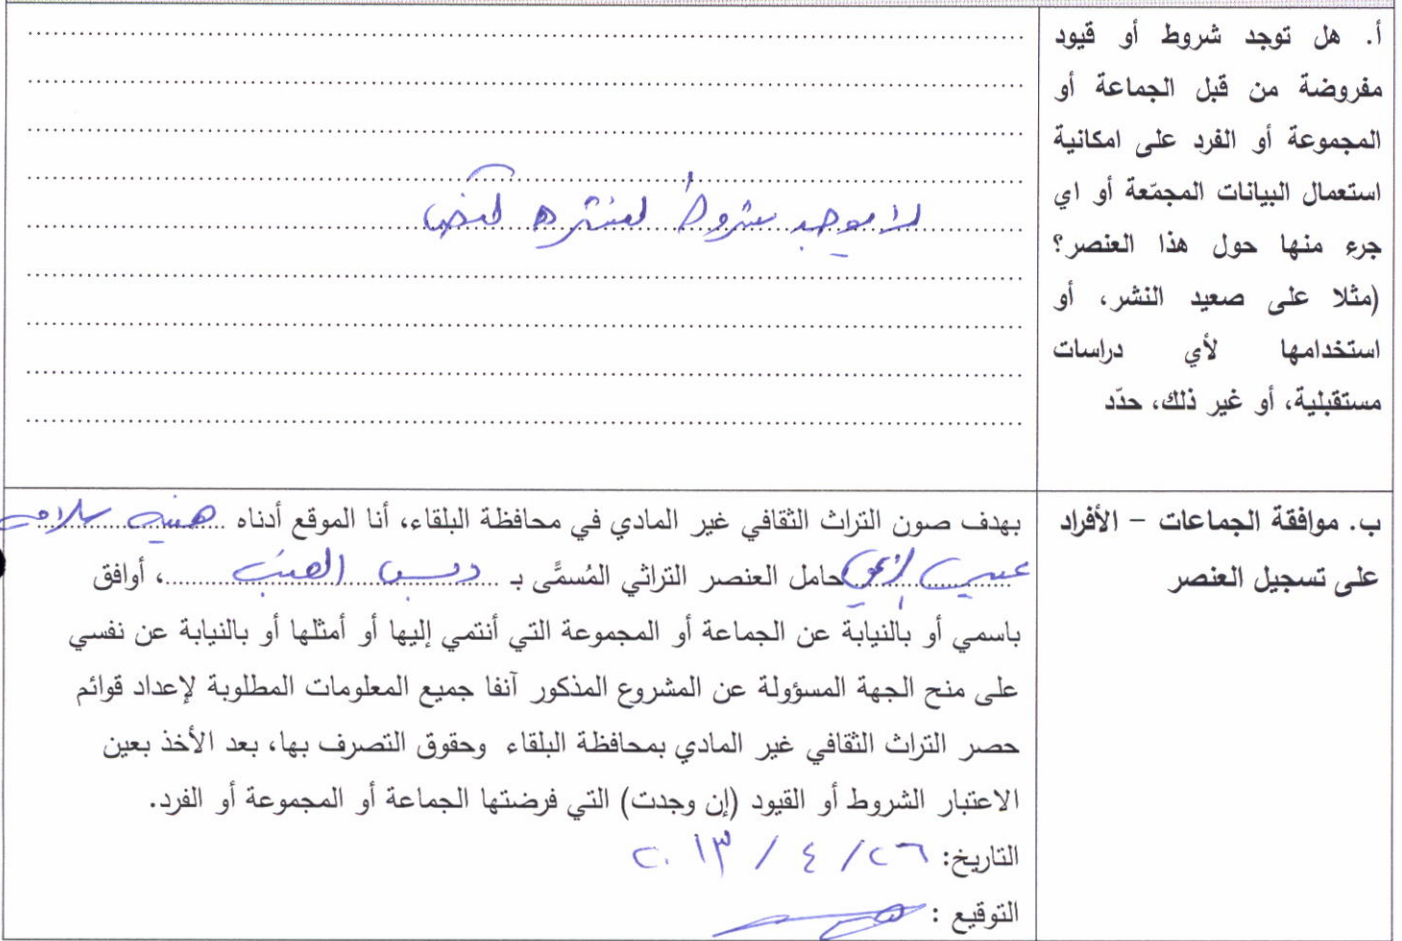 أ. هل توجد شروط أو قيود
مفروضة من قبل الجماعة أو
المجموعة أو الفرد على امكانية
استعمال البيانات المجمّعة أو اي
جرء منها حول هذا العنصر؟
(مثلا على صعيد النشر، أو
استخدامها لأي دراسات
مستقبلية، أو غير ذلك، حدّد
لا يوجد شروط
ب. موافقة الجماعات – الأفراد
على تسجيل العنصر
بهدف صون التراث الثقافي غير المادي في محافظة البلقاء، أنا الموقع أدناه هنيه سلامه
حامل العنصر التراثي المُسمَّى بـ دبس العنب، أوافق
باسمي أو بالنيابة عن الجماعة أو المجموعة التي أنتمي إليها أو أمثلها أو بالنيابة عن نفسي
على منح الجهة المسؤولة عن المشروع المذكور آنفا جميع المعلومات المطلوبة لإعداد قوائم
حصر التراث الثقافي غير المادي بمحافظة البلقاء وحقوق التصرف بها، بعد الأخذ بعين
الاعتبار الشروط أو القيود (إن وجدت) التي فرضتها الجماعة أو المجموعة أو الفرد.
التاريخ: ٢٦/ ٤ / ٢٠١٣
التوقيع :